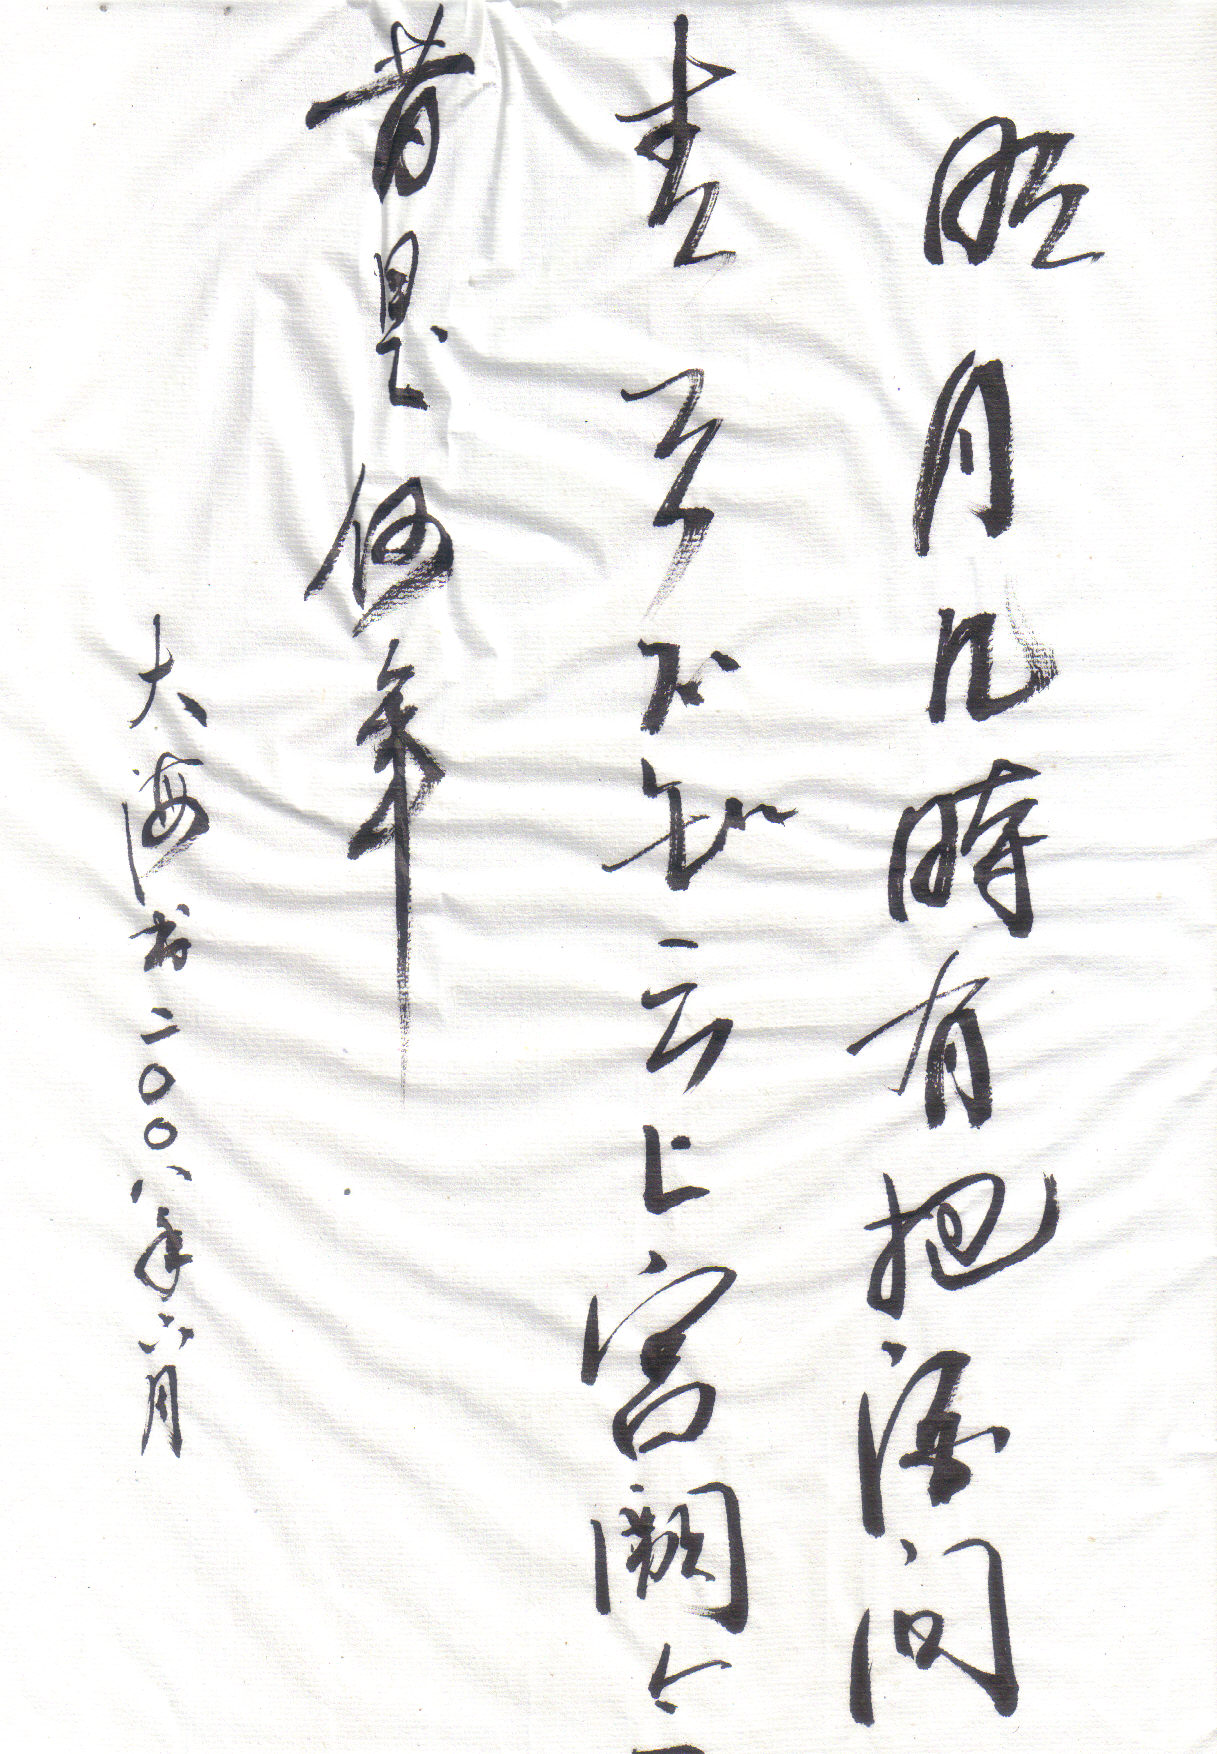 明月几時有把酒问
青天不知云上宫阙今
昔是何年
大海书二〇〇八年六月